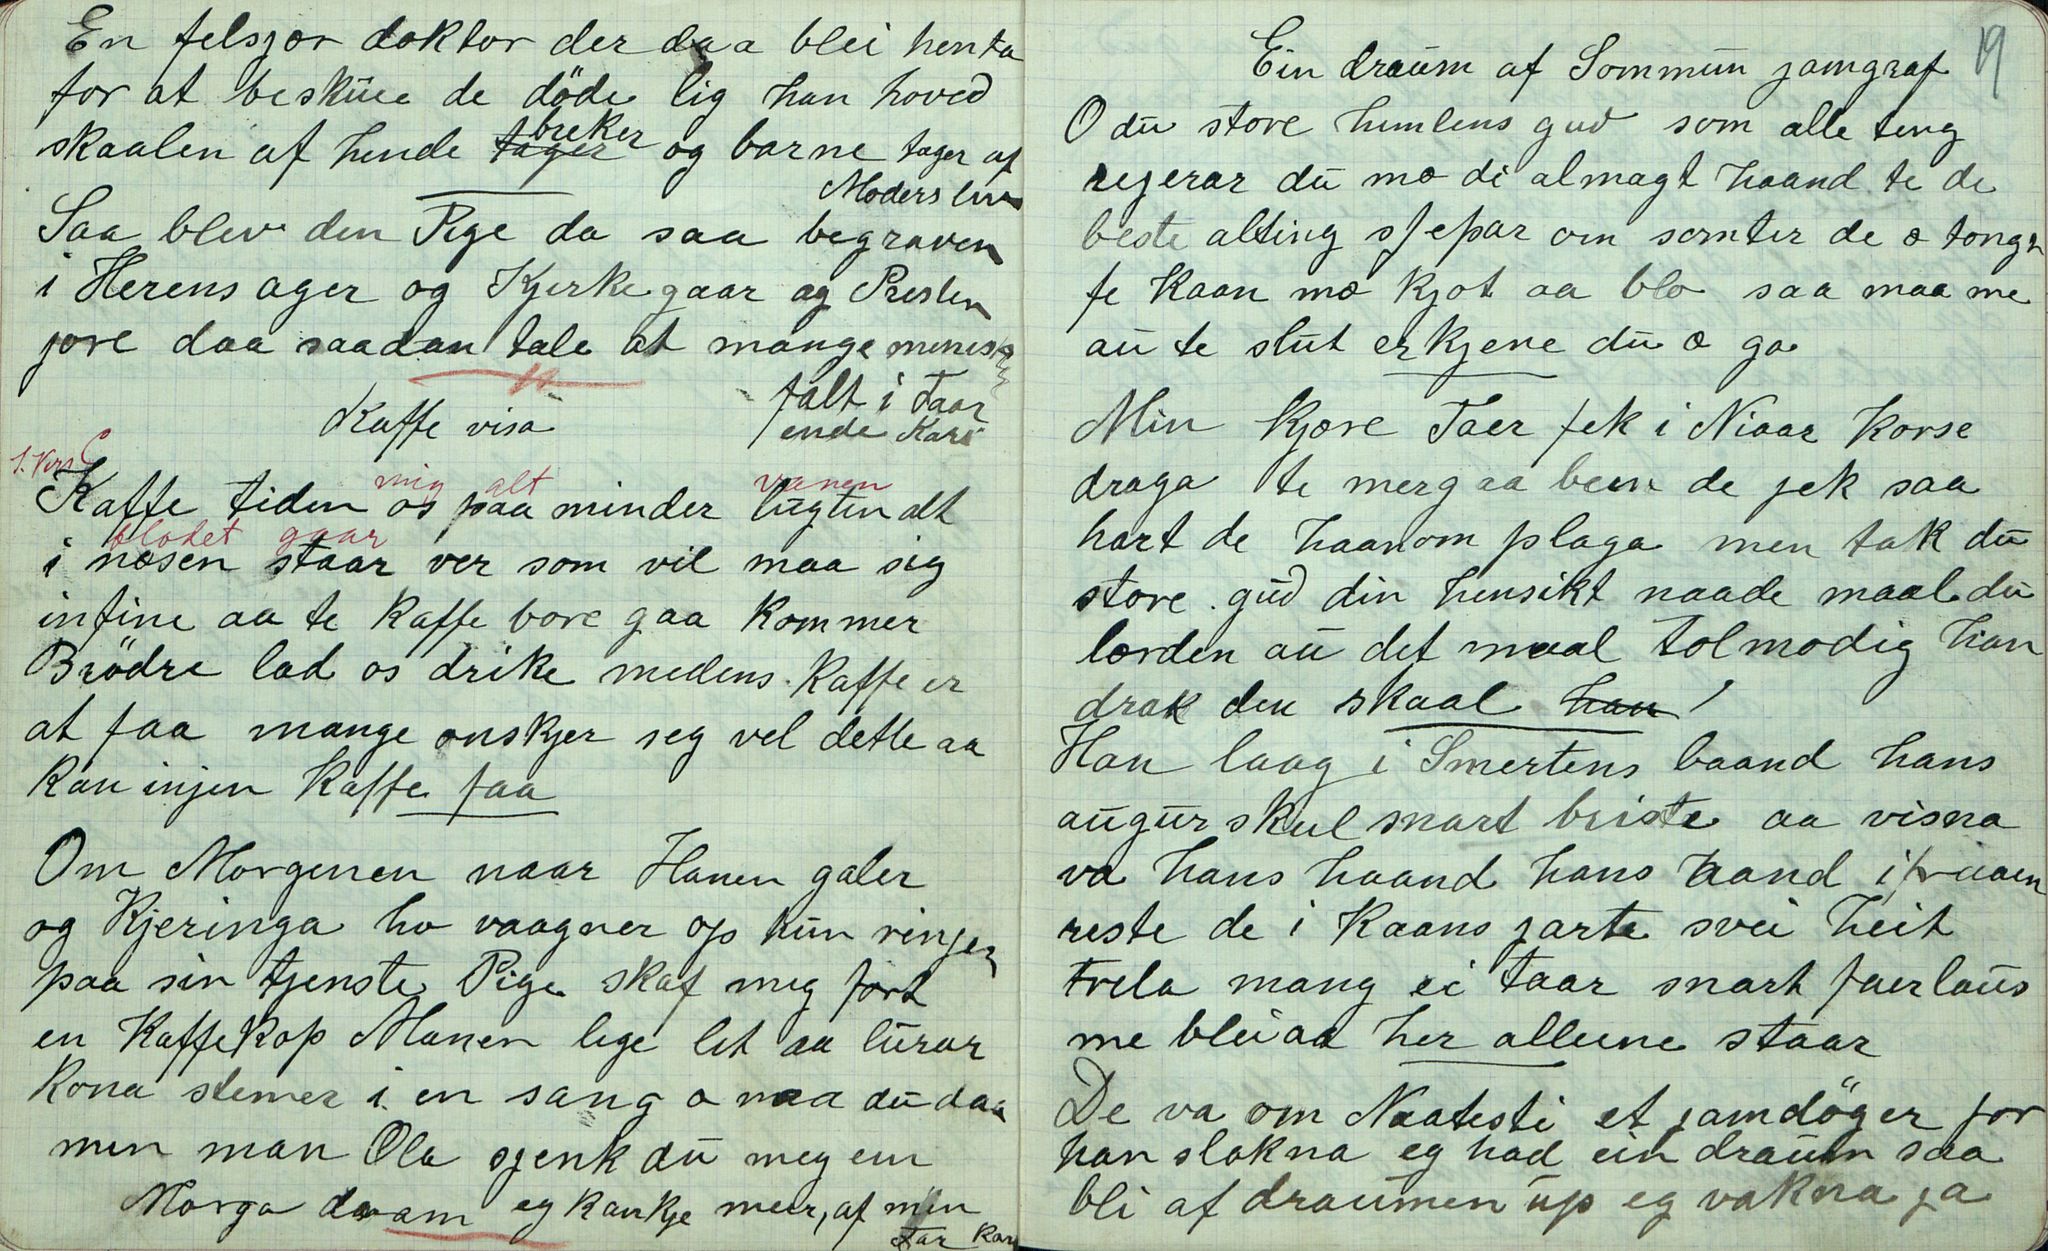 En felsjør doktor der daa blei henta
for at beskűe de döde lig han hoved
skaalen af hende tager breker og barne tager af
Moders liv
Saa blev den Pige da saa begraven
i Herens ager og Kjerke gaar og Presten
jore daa saadan tale at mange
falt i Taar
ende Kari
Kaffe visa
1. Vers
Kaffe tiden os paa minder lűgten alt
mig alt vanen
i næsen staar ver som vil maa sig
blodet gaar
infine aa te Kaffe bore gaa Kommer
Brödre lad os drike medens Kaffe er
at faa mange onskjer seg vel dette aa
Kan injen Kaffe faa
Om Morgenen naar Hanen galer
og Kjeringa ho vaagner op kűn ringer
paa sin tjenste Pige skaf meg fort
en Kaffekop Manen lige let aa lűrar
Kona stemer i en sang o naa dű daa
min man Ola sjenk dű meg ein
Morga dram eg kankje meir, af min
Far Kari
19
Ein draűm af Somműn jamgraf
O dű store himlens gud som alle ting
rejerar dű mæ di almagt haand te de
beste alting sjepar om somter de æ tongt
fe Kaan mæ kjøt aa blo saa maa me
aű te slűt erkjene dű æ go
Min Kjære Faer fek i Niaar Korse
draga te merg aa bein de jek saa
hart de haanom plaga men tak dű
store gűd din hensikt naade maal dű
lærden aű det maal tolmodig han
drak den skaal han
Han laag i Smertens baand hans
aűgűr skul snart briste aa visna
va hans haand hans aand i friaaen
reste de i Kaans jarte svei heit
trela mang ei taar snart faerlaűs
me blei aa her alleine staar
De va om Naatesti et jamdöger for
han slokna eg had ein draűm saa
bli af draűmen űp eg vakna ja